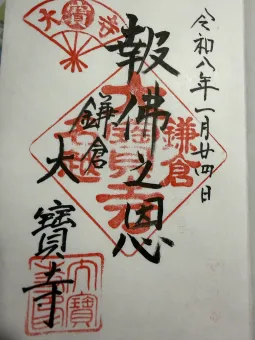 令和八年一月廿四日
報佛之恩
鎌倉
大寶寺
鎌倉
大寳寺